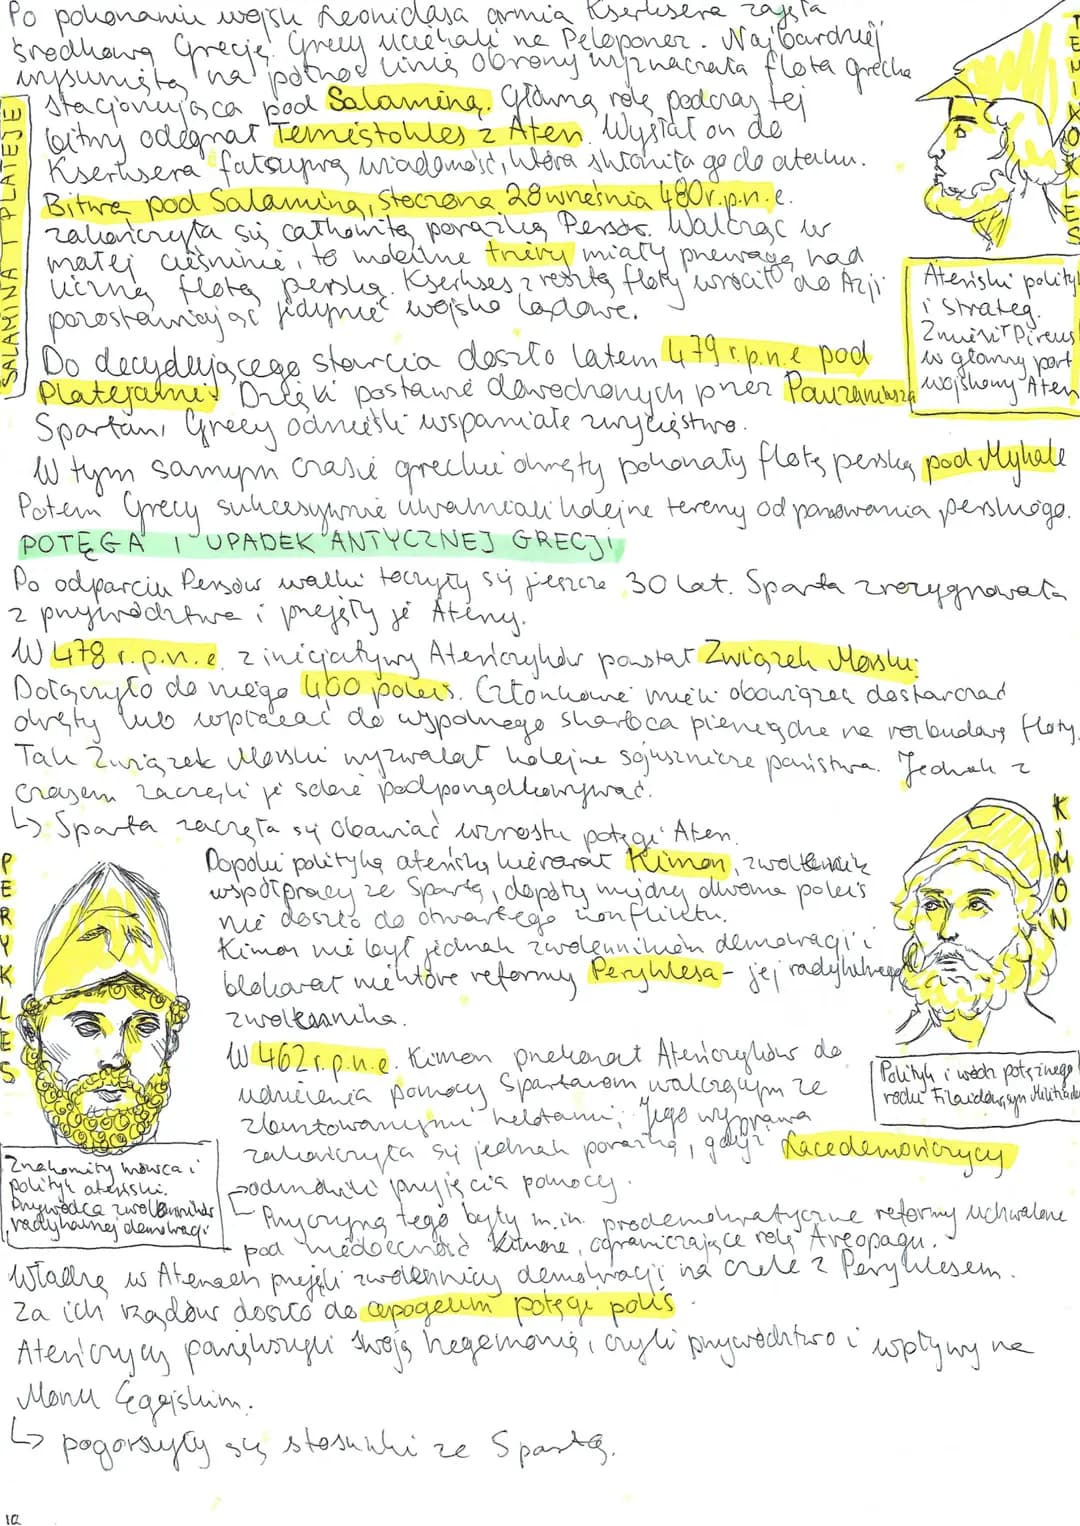 Po pokonaniu wojsk Leonidasa armia Kserksesa zajęła
środkową Grecję. Grecy uciekali na Peloponez. Najbardziej
wysuniętą na północ linię obrony wyznaczała flota grecka
stacjonująca pod Salaminą. Główną rolę podczas tej
bitwy odegrał Temistokles z Aten. Wysłał on do
Kserksesa fałszywą wiadomość, która skłoniła go do ataku.
Bitwa pod Salaminą, stoczona 28 września 480 r. p.n.e.
zakończyła się całkowitą porażką Persów. Walcząc w
małej cieśninie, to mobilne triery miały przewagę nad
liczną flotą perską. Kserkses z resztą floty wrócił do Azji
pozostawiając jedynie wojsko lądowe.
SALAMINA I PLATEJE
TEMISTOKLES
Ateński polityk
i strateg.
Zmienił Pireus
w główny port
wojskowy Aten
Do decydującego starcia doszło latem 479 r.p.n.e pod
Platejami. Dzięki postawie dowodzonych przez Pauzaniasza
Spartan, Grecy odnieśli wspaniałe zwycięstwo.
W tym samym czasie greckie okręty pokonały flotę perską pod Mykale
Potem Grecy sukcesywnie uwalniali kolejne tereny od panowania perskiego.
POTĘGA I UPADEK ANTYCZNEJ GRECJI
Po odparciu Persów walki toczyły się jeszcze 30 lat. Sparta zrezygnowała
z przywództwa i przejęły je Ateny.
W 478 r.p.n.e. z inicjatywy Ateńczyków powstał Związek Morski.
Dołączyło do niego 400 poleis. Członkowie mieli obowiązek dostarczać
okręty lub wpłacać do wspólnego skarbca pieniądze na rozbudowę floty.
Tak Związek Morski wyzwalał kolejne sojusznicze państwa. Jednak z
czasem zaczęli je sobie podporządkowywać.
↳ Sparta zaczęła się obawiać wzrostu potęgi Aten.
Dopóki polityką ateńską kierował Kimon, zwolennik
współpracy ze Spartą, dopóty między dwoma poleis
nie doszło do otwartego konfliktu.
Kimon nie był jednak zwolennikiem demokracji i
blokował niektóre reformy Peryklesa - jej radykalnego
zwolennika.
KIMON
Polityk i wódz potężnego
rodu Filaidów, syn Miltiadesa
PERYKLES
Znakomity mówca i
polityk ateński.
Przywódca zwolenników
radykalnej demokracji
W 462 r.p.n.e. Kimon przekonał Ateńczyków do
udzielenia pomocy Spartanom walczącym ze
zbuntowanymi helotami. Jego wyprawa
zakończyła się jednak porażką, gdyż Lacedemończycy
odmówili przyjęcia pomocy.
↳ Przyczyną tego były m.in. prodemokratyczne reformy uchwalone
pod nieobecność Kimona, ograniczające rolę Areopagu.
Władzę w Atenach przejęli zwolennicy demokracji na czele z Peryklesem.
Za ich rządów doszło do apogeum potęgi polis.
Ateńczycy powiększyli swoją hegemonię, czyli przywództwo i wpływy na
Morzu Egejskim.
↳ pogorszyły się stosunki ze Spartą.